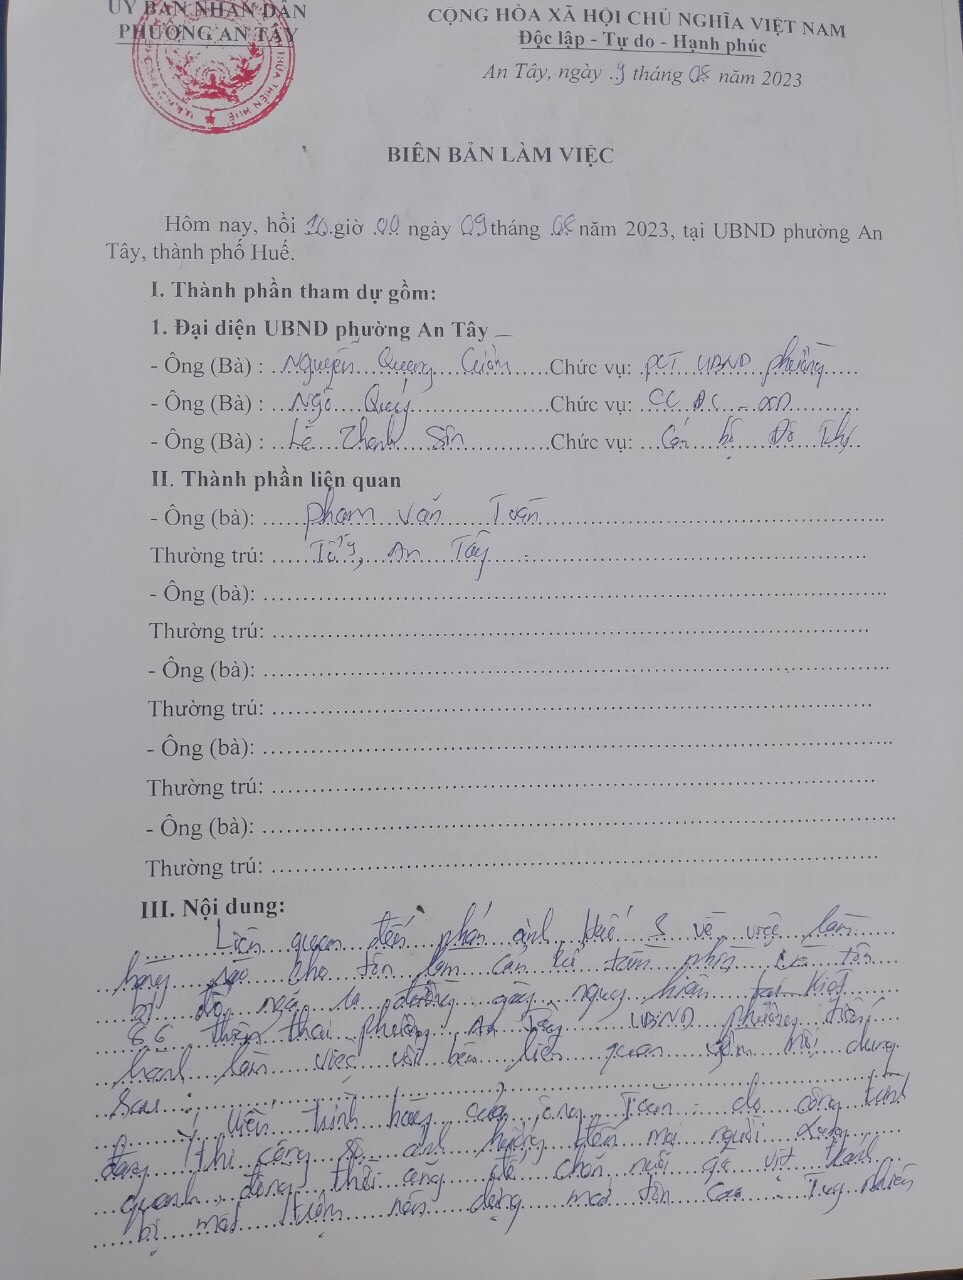 ỦY BAN NHÂN DÂN
PHƯỜNG AN TÂY
CỘNG HÒA XÃ HỘI CHỦ NGHĨA VIỆT NAM
Độc lập - Tự do - Hạnh phúc
An Tây, ngày 9 tháng 08 năm 2023
BIÊN BẢN LÀM VIỆC
Hôm nay, hồi 10 giờ 00 ngày 09 tháng 08 năm 2023, tại UBND phường An
Tây, thành phố Huế.
I. Thành phần tham dự gồm:
1. Đại diện UBND phường An Tây
- Ông (Bà) : Nguyễn Quang Chức vụ: PCT UBND phường
- Ông (Bà) : Ngô Quý Chức vụ: CC ĐC - XD
- Ông (Bà) : Lê Thanh Sơn Chức vụ: Cán bộ Đô Thị
II. Thành phần liên quan
- Ông (bà): Phạm Văn Toàn
Thường trú: Tổ 9, An Tây
- Ông (bà):
Thường trú:
- Ông (bà):
Thường trú:
- Ông (bà):
Thường trú:
- Ông (bà):
Thường trú:
III. Nội dung:
Liên quan đến phản ánh Huế S về việc làm
hàng rào che tôn tấm
ngã ra đường gây nguy hiểm tại Kiệt
66 thiên thai phường An Tây UBND phường tiến
hành làm việc với bên liên quan gồm nội dung
Sau :
Ý kiến trình bày của ông Toàn: do công trình
đang thi công ảnh hưởng đến mọi người xung
quanh, đồng thời cũng để chăn nuôi gà vịt tránh
bị mất trộm nên dựng mái tôn cao. Tuy nhiên